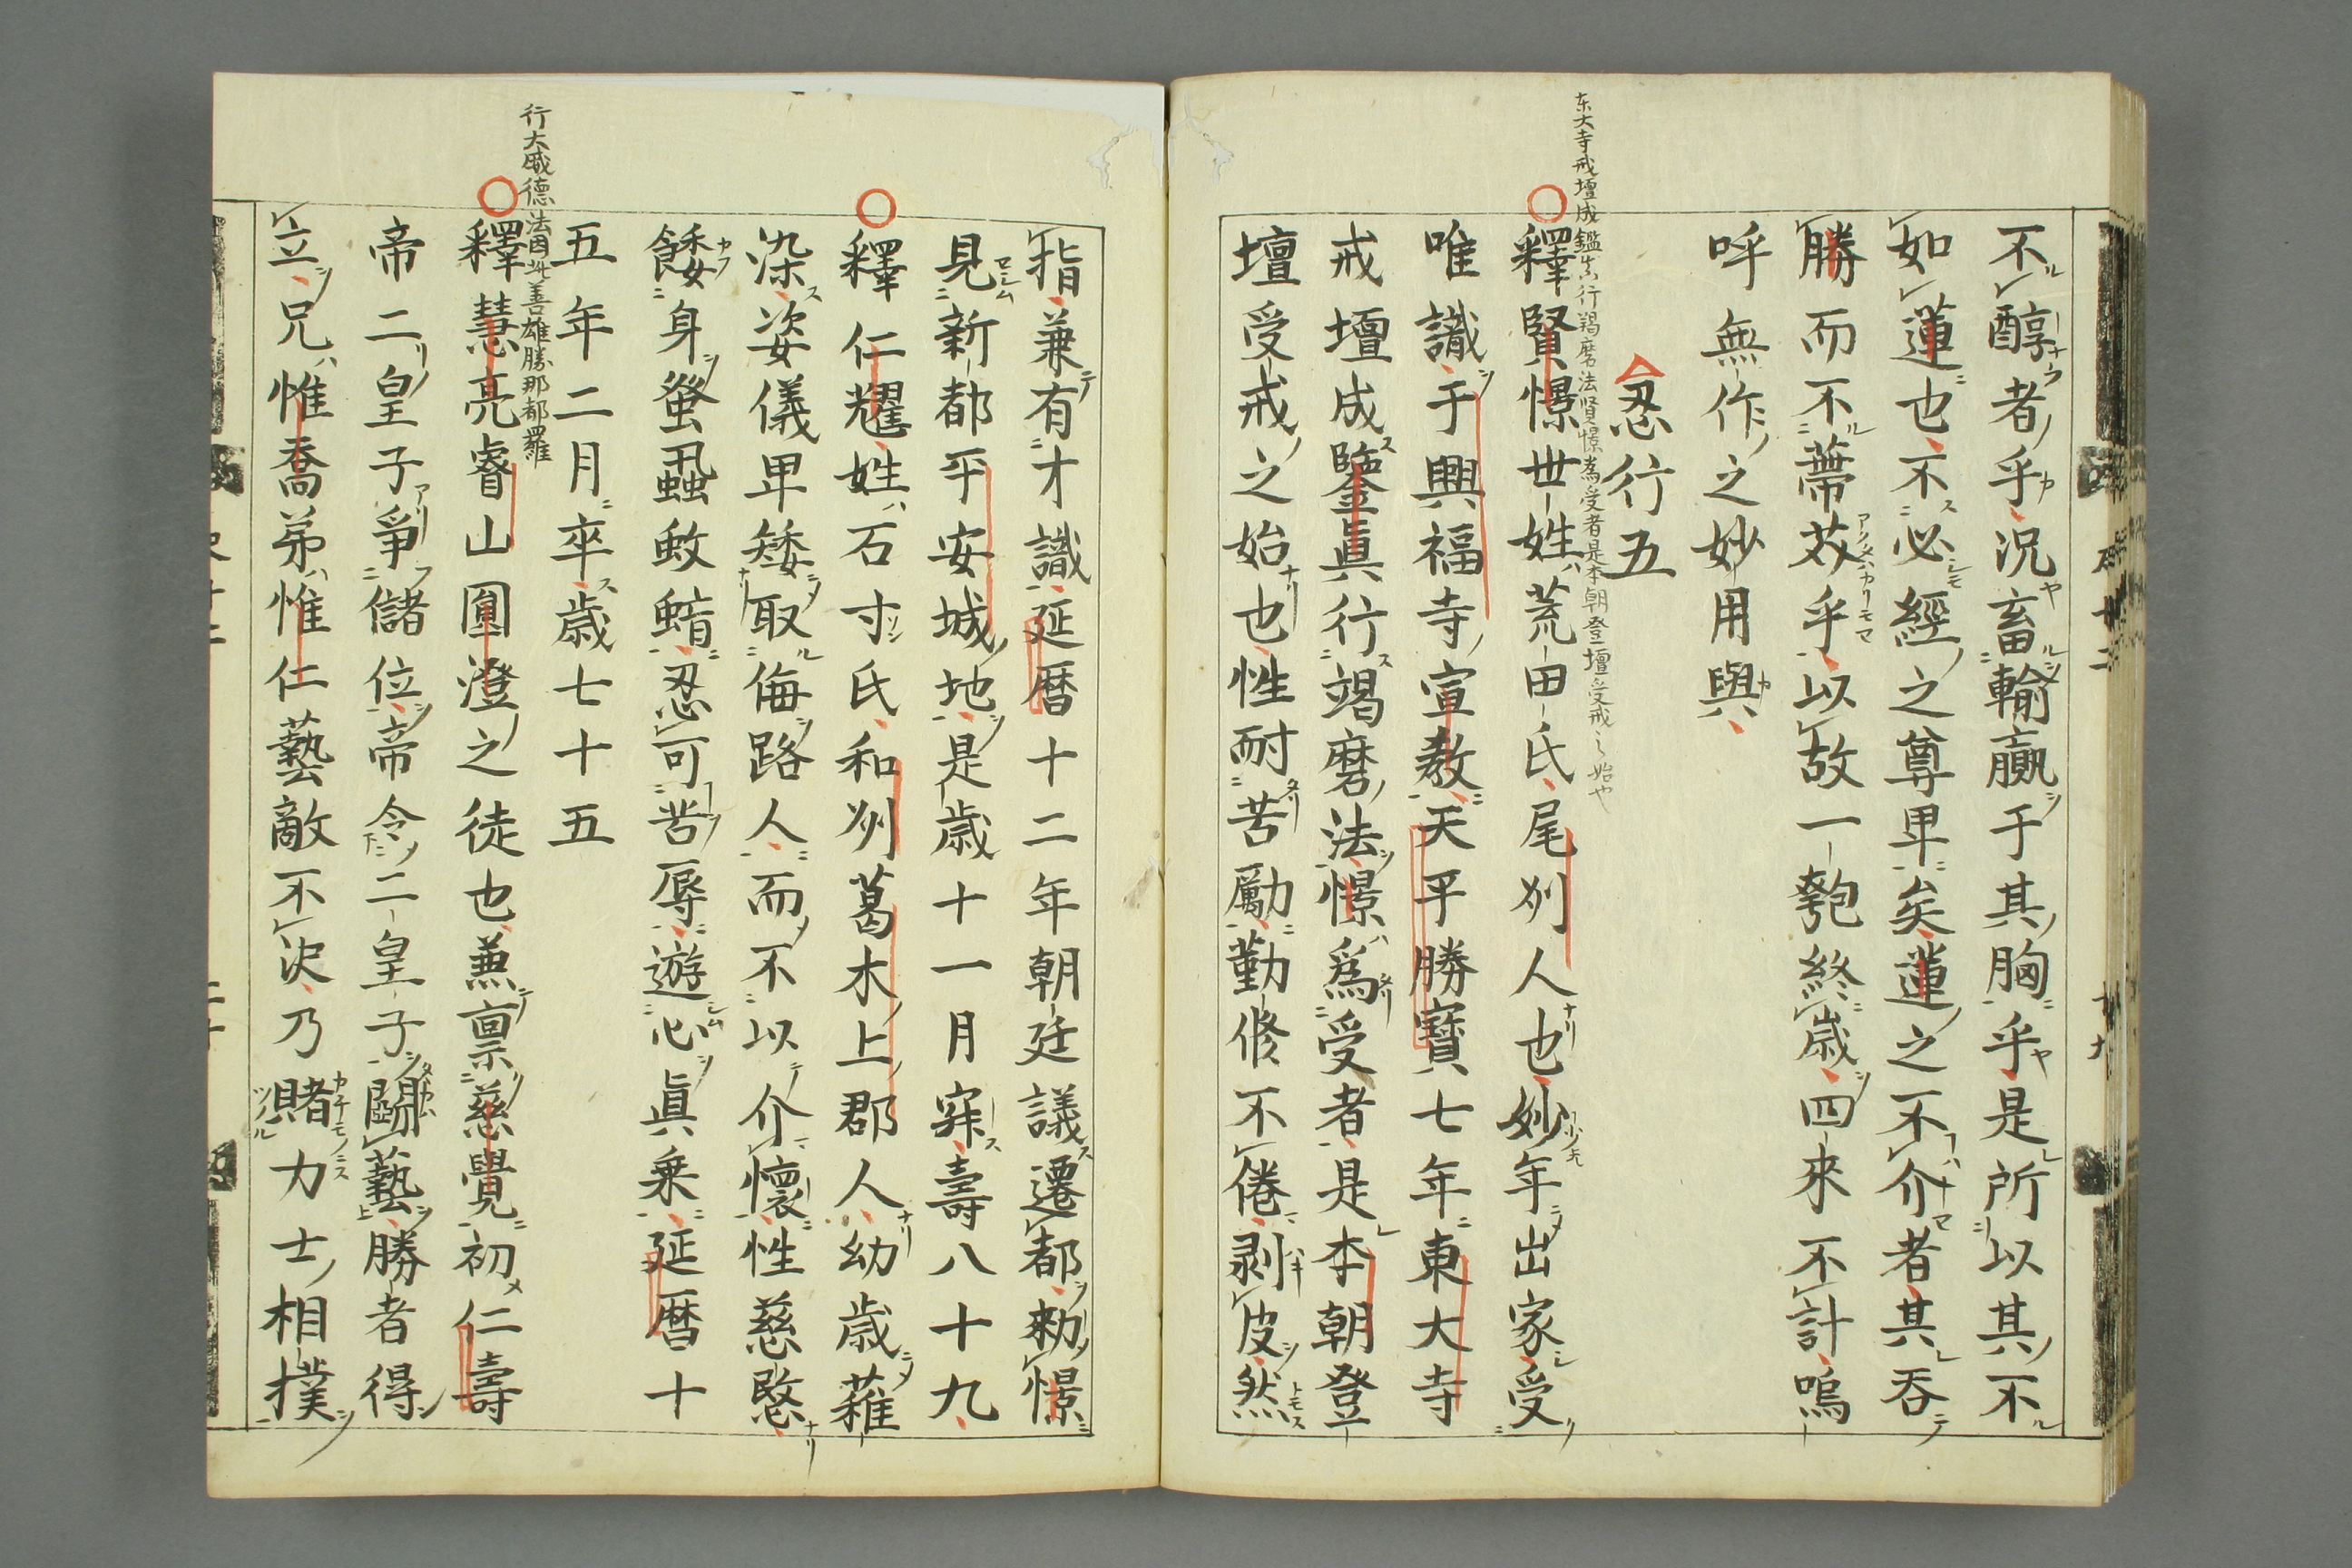 不醇者乎況畜輸贏于其胸乎是所以其不
如蓮也不必經之尊卑矣蓮之不介者其吞
勝而不蔕芥乎以故一匏終歳四來不計嗚
呼無作之妙用與
忍行五
东大寺戒壇成鑑真行羯磨法賢憬為受者是本朝登壇受戒之始や
釋賢憬世姓荒田氏尾刕人也妙年出家受
唯識于興福寺宣教天平勝寶七年東大寺
戒壇成鑒眞行羯磨法憬爲受者是本朝登
壇受戒之始也性耐苦勵勤修不倦剥皮然
指兼有才識延暦十二年朝廷議遷都勑憬
見新都平安城地是歳十一月寂壽八十九
釋仁耀姓石寸氏和刕葛木上郡人幼歳薙
染姿儀卑矮取侮路人而不以介懷性慈愍
餧身蚤虱蚊蜟忍可苦辱遊心眞乗延暦十
五年二月卒歳七十五
行大威德法因此善雄勝那都羅
釋慧亮睿山圓澄之徒也兼禀慈覺初仁壽
帝二皇子爭儲位帝令二皇子鬪藝勝者得
立兄惟喬弟惟仁藝敵不决乃賭力士相撲